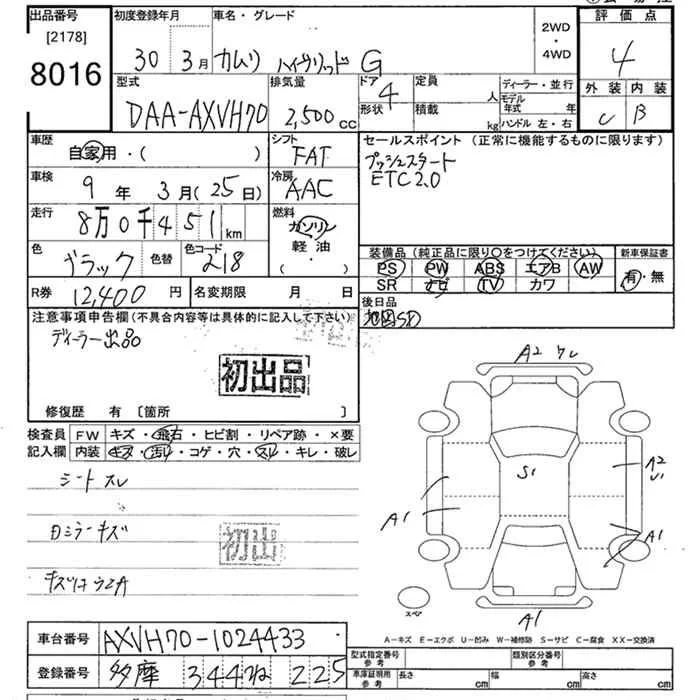 出品番号
[2178]
8016
初度登録年月
30年 3月
車名・グレード
カムリ ハイブリッド G
2WD
・
4WD
評価点
4
外装 内装
C B
型式
DAA-AXVH70
排気量
2,500cc
ドア 4
形状
定員 人
積載 kg
ディーラー・並行
モデル年式 年
ハンドル 左・右
車歴
自家用・( )
シフト
FAT
セールスポイント(正常に機能するものに限ります)
プッシュスタート
ETC2.0
車検
9年 3月(25日)
冷房
AAC
走行
8万0千451km
燃料
ガソリン
軽油
( ・ )
色
ブラック
色替
色コード
218
装備品(純正品に限り○をつけてください)
PS PW ABS エアB AW
SR ナビ TV カワ
新車保証書
有・無
R券 12,400円
名変期限 月 日
後日品
地図SD
注意事項申告欄(不具合内容等は具体的に記入して下さい)
ディーラー出品
初出品
修復歴 有 [箇所 ]
検査員 FW キズ・飛石・ヒビ割・リペア跡・×要
記入欄 内装 キズ・汚れ・コゲ・穴・スレ・キレ・破レ
シートスレ
初出
A2
S1
A2
U1
A1
A1
A1
スペア
A−キズ E−エクボ U−凹み W−補修跡 S−サビ C−腐食 XX−交換済
車台番号 AXVH70-1024433
登録番号 多摩 344 ね 225
型式指定番号
参考
類別区分番号
参考
車庫証明用
参考
長さ cm 幅 cm 高さ cm